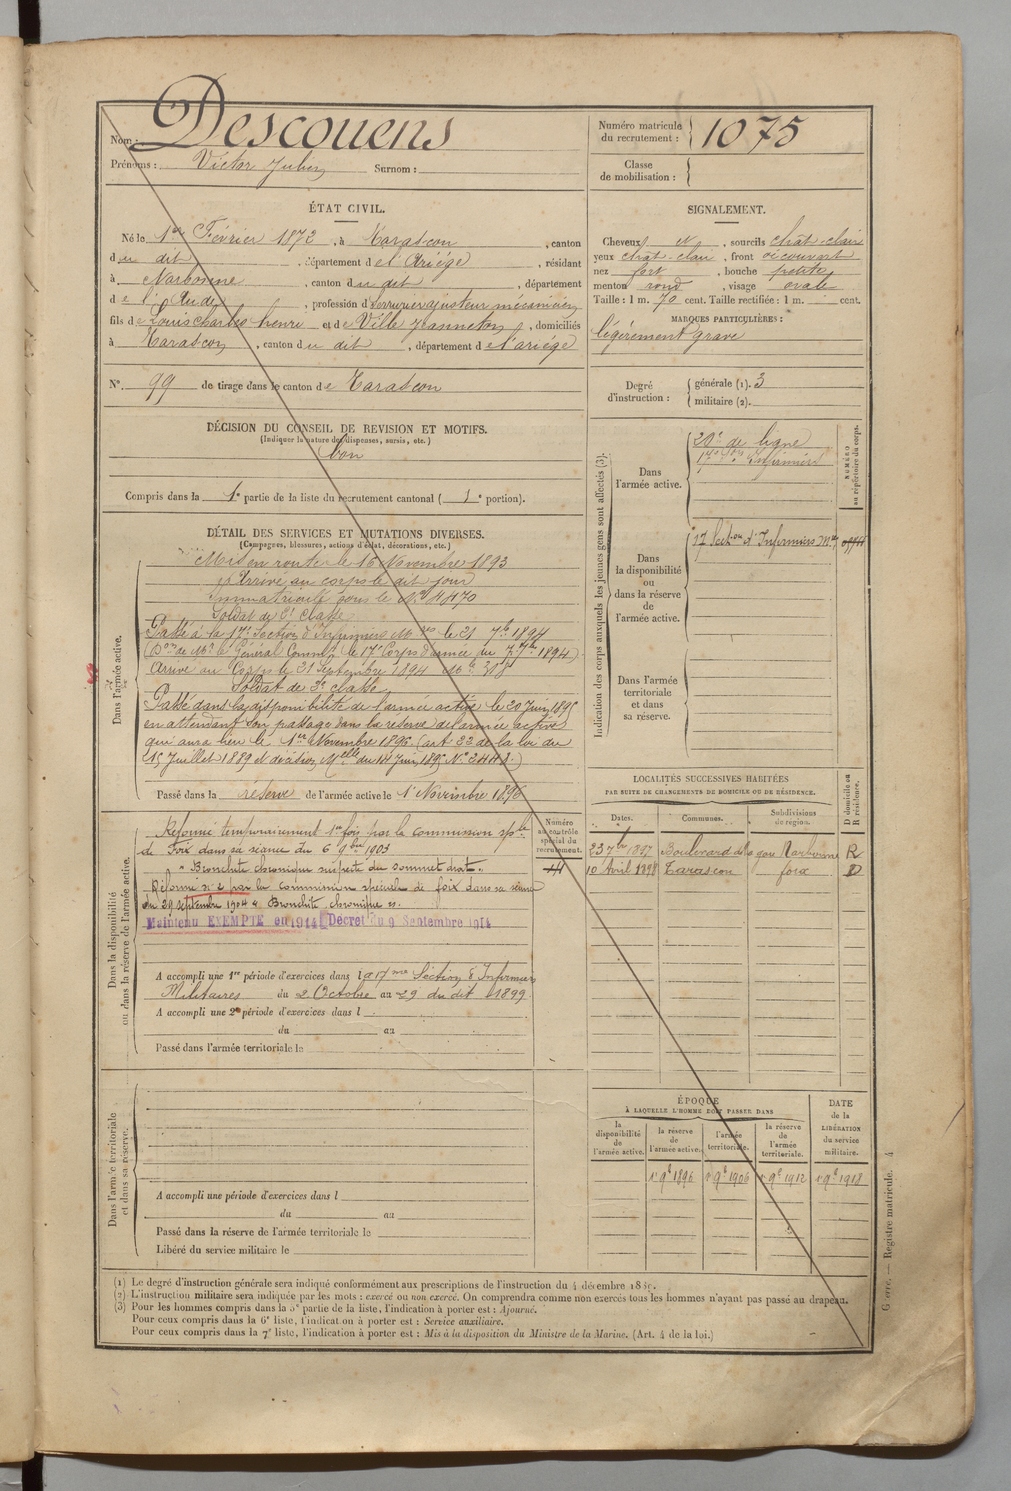 Nom : Descouens
Prénoms : Victor Julien Surnom :
Numéro matricule du recrutement : 1075
Classe de mobilisation :
ÉTAT CIVIL.
Né le 1er Février 1872, à Tarascon, canton
du dit, département de l'Ariége, résidant
à Narbonne, canton du dit, département
de l'Aude, profession d serrurier ajusteur mécanicien
fils de Louis Charles henri et de Ville Jeanneton, domiciliés
à Tarascon, canton du dit, département de l'ariége
N° 99 de tirage dans le canton de Tarascon
SIGNALEMENT.
Cheveux et, sourcils chat. clair
yeux chat. clair, front découvert
nez fort, bouche petite
menton rond, visage ovale
Taille : 1 m. 70 cent. Taille rectifiée : 1 m. cent.
MARQUES PARTICULIÈRES :
légèrement gravé
Degré d'instruction : générale (1). 3
militaire (2).
DÉCISION DU CONSEIL DE REVISION ET MOTIFS.
(Indiquer la nature des dispenses, sursis, etc.)
bon
Compris dans la 1e partie de la liste du recrutement cantonal ( 1e portion).
DÉTAIL DES SERVICES ET MUTATIONS DIVERSES.
(Campagnes, blessures, actions d'éclat, décorations, etc.)
Dans l'armée active.
Mis en route le 16 Novembre 1893
Arrivé au corps le dit jour
Immatriculé sous le N° 4470
Soldat de 2e classe
Passé à la 17e Section d'Infirmiers Mres le 21 7bre 1894
Général Commdt le 17e Corps d'armée du 7 7bre 1894)
Arrivé au Corps le 21 Septembre 1894
Soldat de 2e classe
Passé dans la disponibilité de l'armée active le 20 Juin 1895
en attendant son passage dans la réserve de l'armée active
qui aura lieu le 1er Novembre 1896 (art 32 de la loi du
15 Juillet 1889 et décision Melle du 14 Juin 1895 N°
Passé dans la réserve de l'armée active le 1er Novembre 1896
Indication des corps auxquels les jeunes gens sont affectés (3).
NUMÉRO au répertoire du corps.
Dans l'armée active.
20e de ligne
17e Son Infirmiers
Dans la disponibilité ou dans la réserve de l'armée active.
17 Section d'Infirmiers Mres
Dans l'armée territoriale et dans sa réserve.
LOCALITÉS SUCCESSIVES HABITÉES
PAR SUITE DE CHANGEMENTS DE DOMICILE OU DE RÉSIDENCE.
Dates. Communes. Subdivisions de région. D domicile ou R résidence.
23 7bre 1897 Boulevard de la gare Narbonne R
10 Avril 1898 Tarascon foix D
Dans la disponibilité ou dans la réserve de l'armée active.
Numéro au contrôle spécial du recrutement.
Réformé temporairement 1re fois par la commission sple
de Foix dans sa séance du 6 9bre 1903
"Bronchite chronique suspecte du sommet droit".
Réformé n° 2 par la Commission spéciale de foix dans sa séance
du 29 septembre 1904 Bronchite chronique
Maintenu EXEMPTÉ en 1914 Décret du 9 Septembre 1914
A accompli une 1re période d'exercices dans la 17me Section d'Infirmiers
Militaires du 2 Octobre au 29 du dit 1899
A accompli une 2e période d'exercices dans l
du au
Passé dans l'armée territoriale le
Dans l'armée territoriale et dans sa réserve.
A accompli une période d'exercices dans l
du au
Passé dans la réserve de l'armée territoriale le
Libéré du service militaire le
ÉPOQUE
À LAQUELLE L'HOMME DOIT PASSER DANS
la disponibilité de l'armée active. la réserve de l'armée active. l'armée territoriale. la réserve de l'armée territoriale.
DATE de la LIBÉRATION du service militaire.
1er 9bre 1896 1er 9bre 1906 1er 9bre 1912 1er 9bre 1918
(1) Le degré d'instruction générale sera indiqué conformément aux prescriptions de l'instruction du 4 décembre
(2) L'instruction militaire sera indiquée par les mots : exercé ou non exercé. On comprendra comme non exercés tous les hommes n'ayant pas passé au drapeau.
(3) Pour les hommes compris dans la 5e partie de la liste, l'indication à porter est : Ajourné.
Pour ceux compris dans la 6e liste, l'indication à porter est : Service auxiliaire.
Pour ceux compris dans la 7e liste, l'indication à porter est : Mis à la disposition du Ministre de la Marine. (Art. 4 de la loi.)
Guerre. — Registre matricule. 4